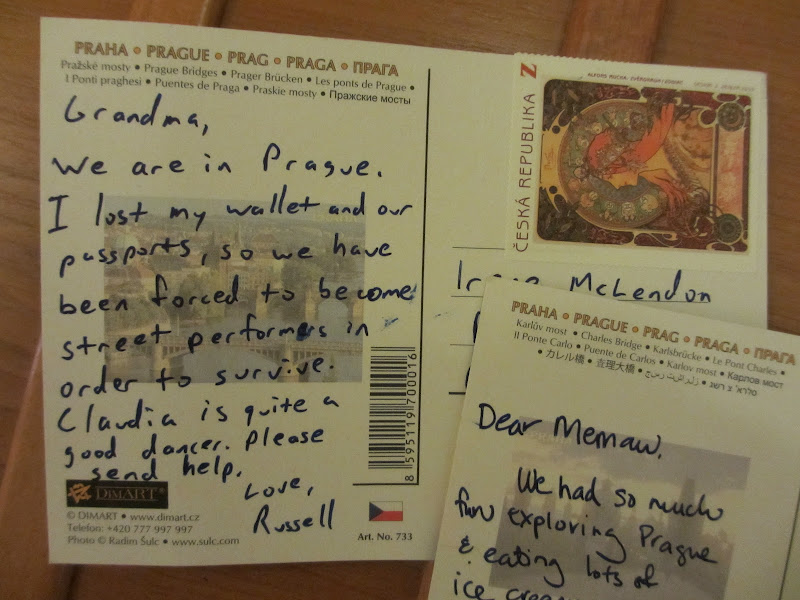 PRAHA • PRAGUE • PRAG • PRAGA • ПРАГА
Pražské mosty • Prague Bridges • Prager Brücken • Les ponts de Prague •
I Ponti praghesi • Puentes de Praga • Praskie mosty • Пражские мосты
Grandma,
We are in Prague.
I lost my wallet and our
passports, so we have
been forced to become
street performers in
order to survive.
Claudia is quite a
good dancer. Please
send help.
Love,
Russell
DIMART
© DIMART • www.dimart.cz
Telefon: +420 777 997 997
Photo © Radim Šulc • www.sulc.com
8 595119 700016
Art. No. 733
ČESKÁ REPUBLIKA Z
McLendon
PRAHA • PRAGUE • PRAG • PRAGA • ПРАГА
Karlův most • Charles Bridge • Karlsbrücke • Le Pont Charles •
Il Ponte Carlo • Puente de Carlos • Karlov most • Карлов мост
• カレル橋 • 查理大橋 •
Dear Memaw,
We had so much
fun exploring Prague
& eating lots of
ice cream